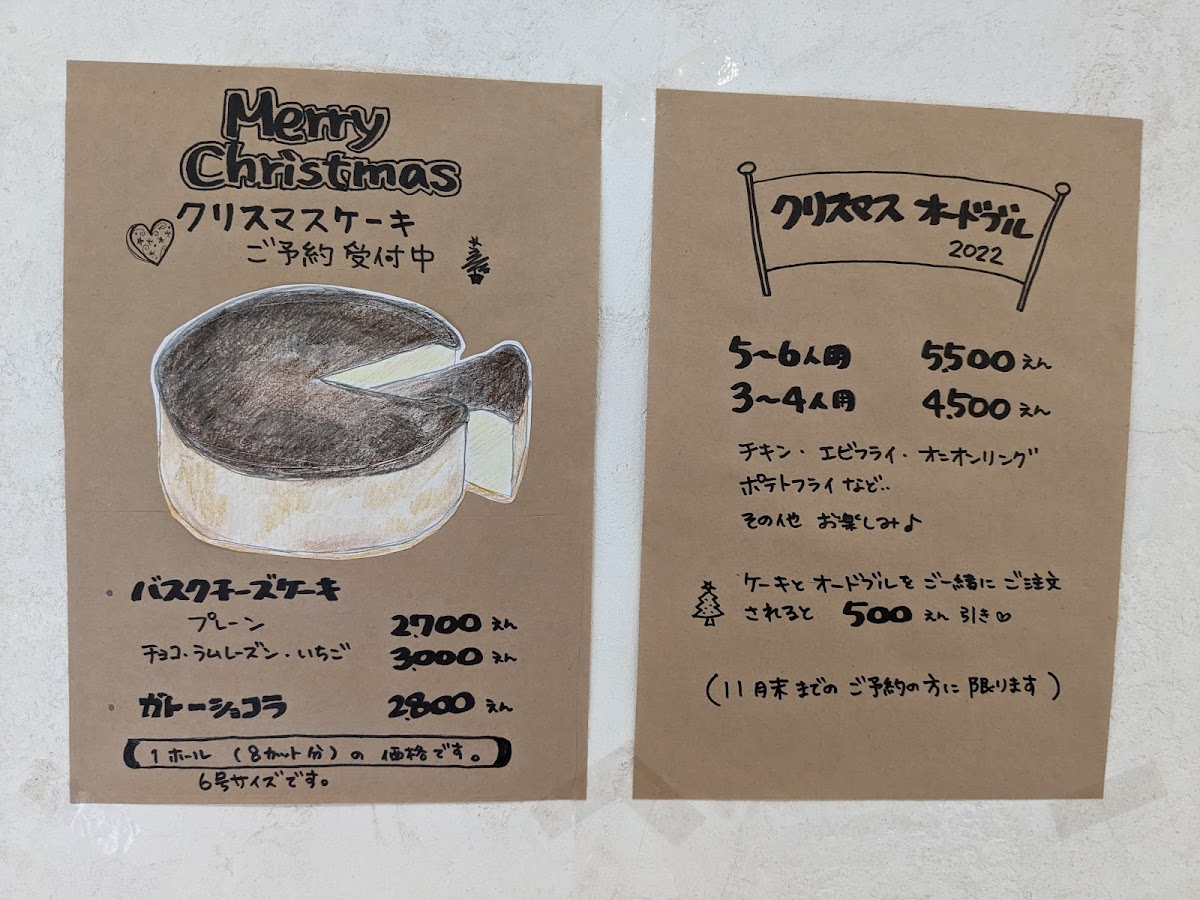 Merry
Christmas
クリスマスケーキ
ご予約受付中
・バスクチーズケーキ
プレーン 2,700えん
チョコ・ラムレーズン・いちご 3,000えん
・ガトーショコラ 2,800えん
1ホール (8カット分) の 価格です。
6号サイズです。
クリスマス オードブル
2022
5~6人用 5,500えん
3~4人用 4,500えん
チキン・エビフライ・オニオンリング
ポテトフライなど..
その他 お楽しみ♪
ケーキと オードブルを ご一緒に ご注文
されると 500えん 引き♡
(11月末までの ご予約の方に 限ります)